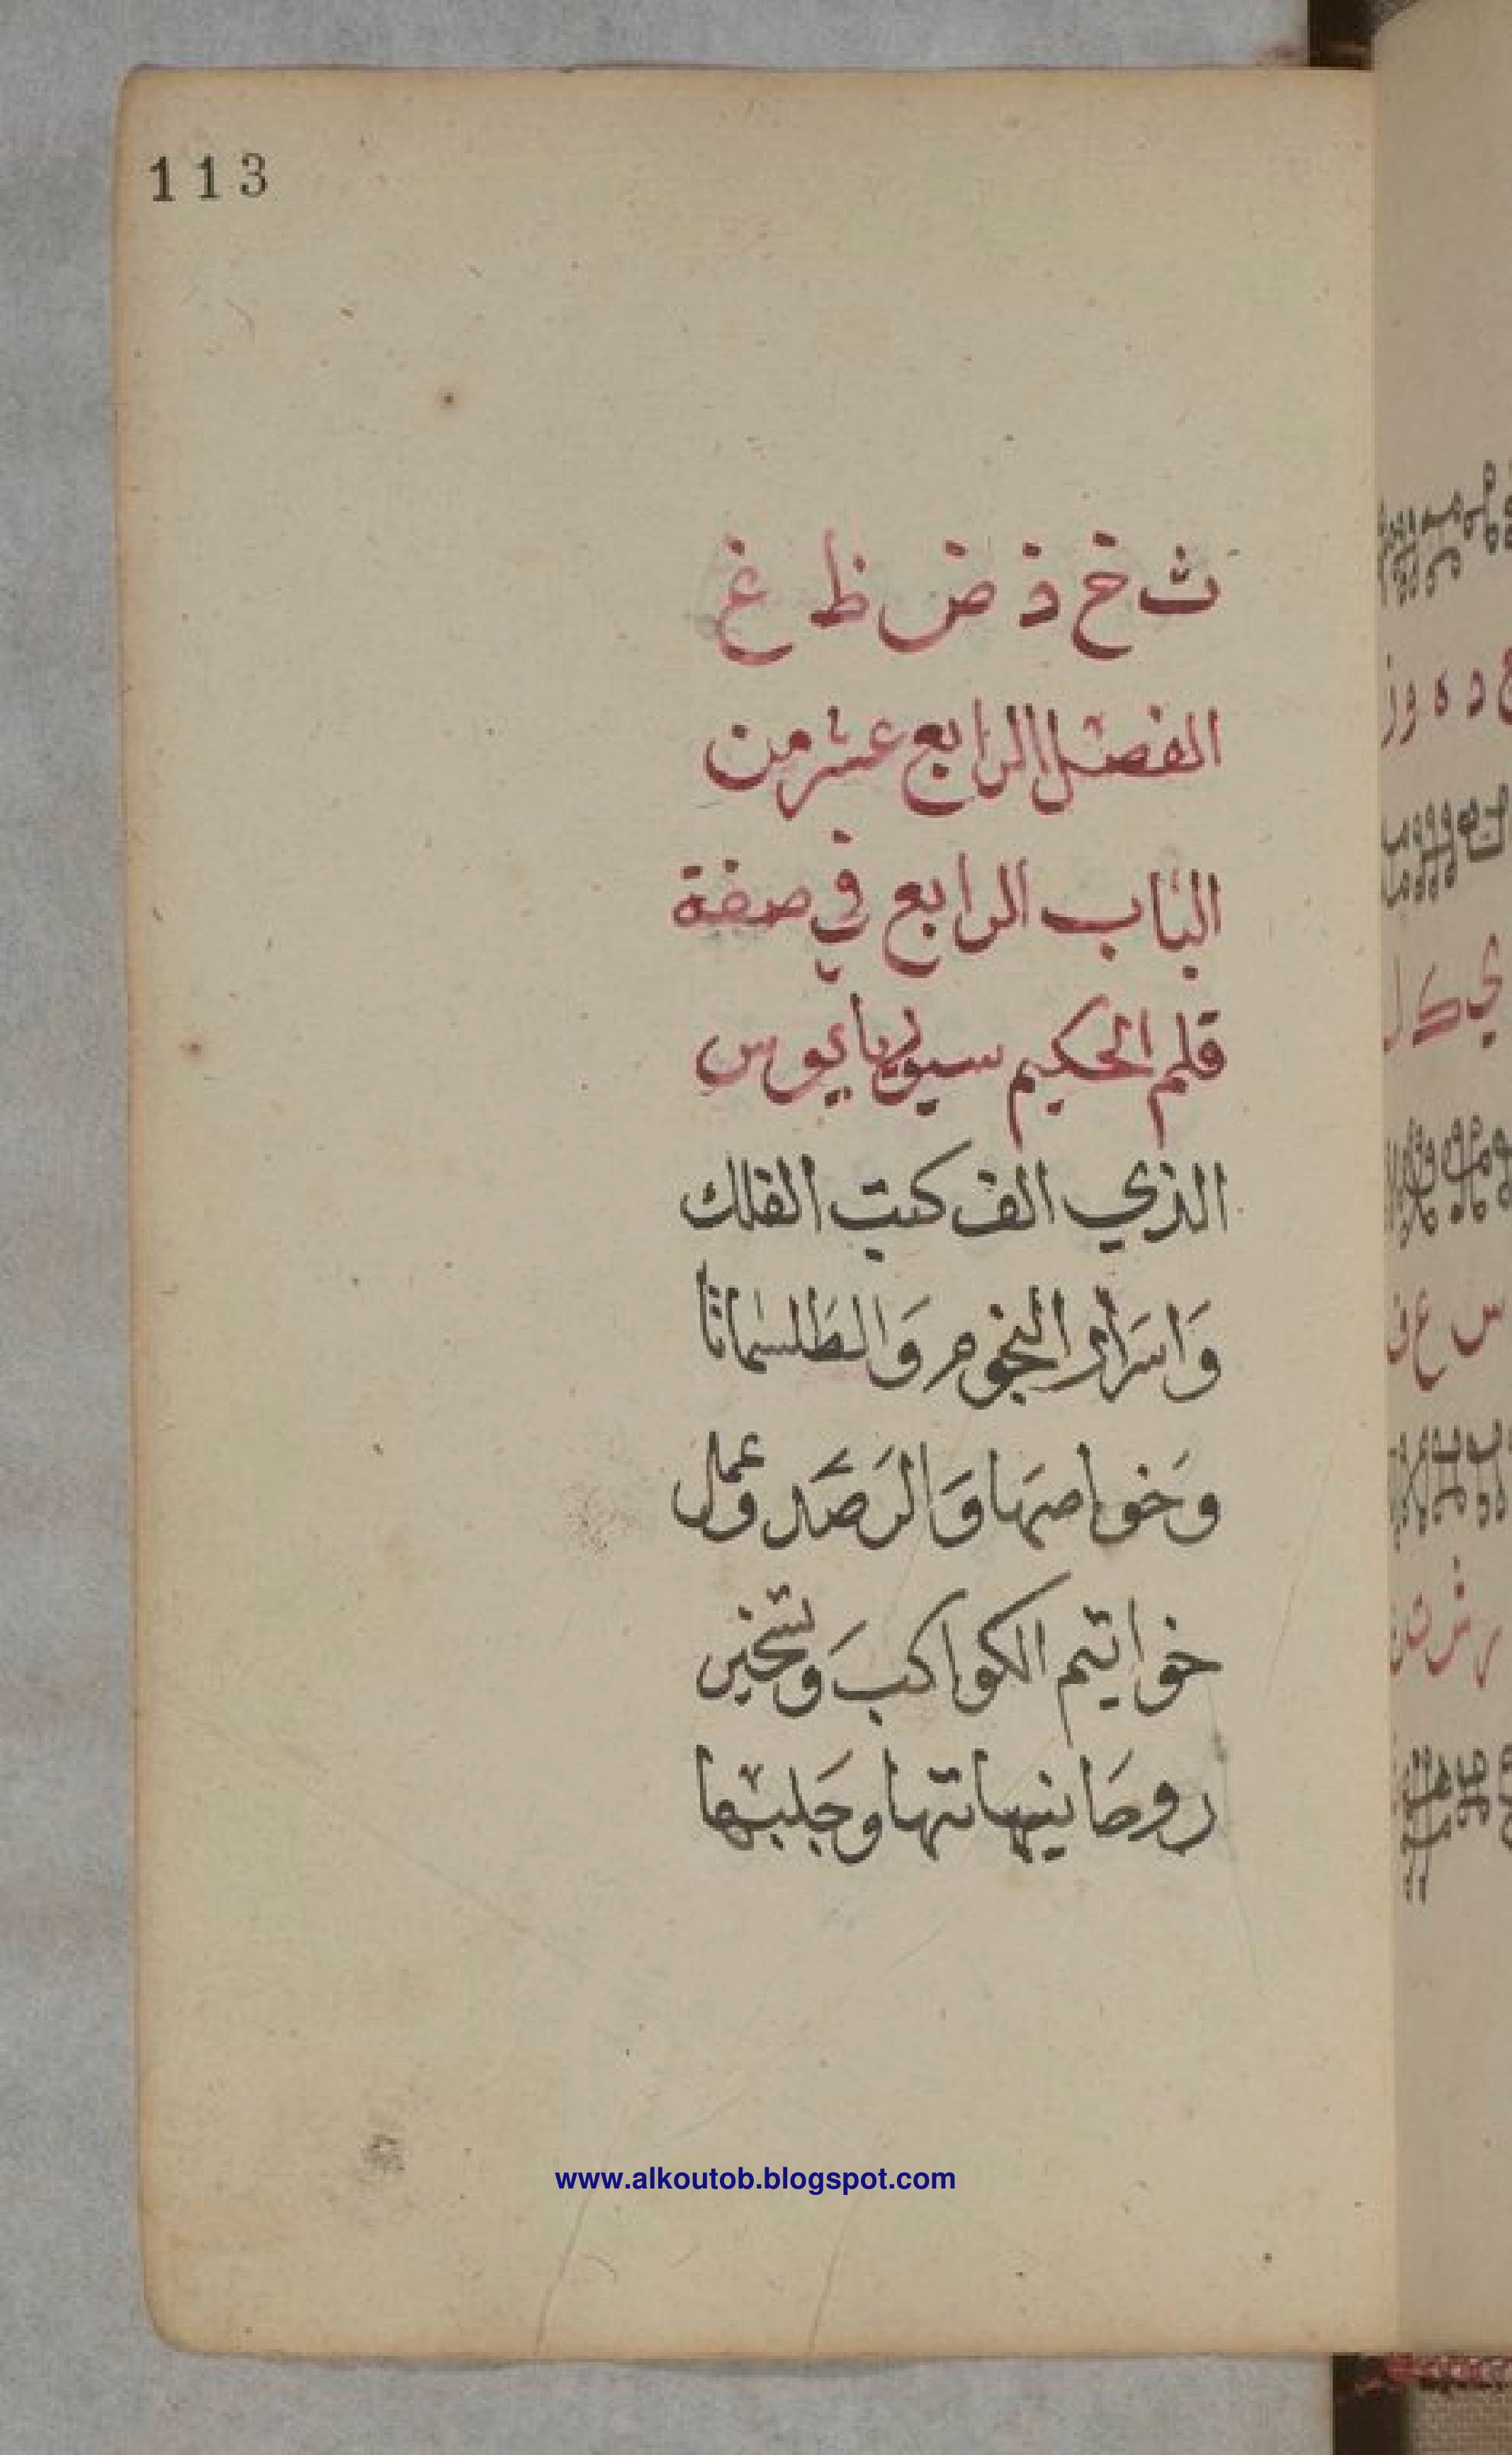 113
ث خ ذ ض ظ غ
الفصل الرابع عشر من
الباب الرابع في صفة
قلم الحكيم سيوريانوس
الذي الف كتب الفلك
وَاسرَار النجوم وَالطَلسماتا
وَخواصهَا وَالرَصَد وعمل
خواتيم الكواكبَ وتسخير
روحَانيهاتها وجَلبها
www.alkoutob.blogspot.com